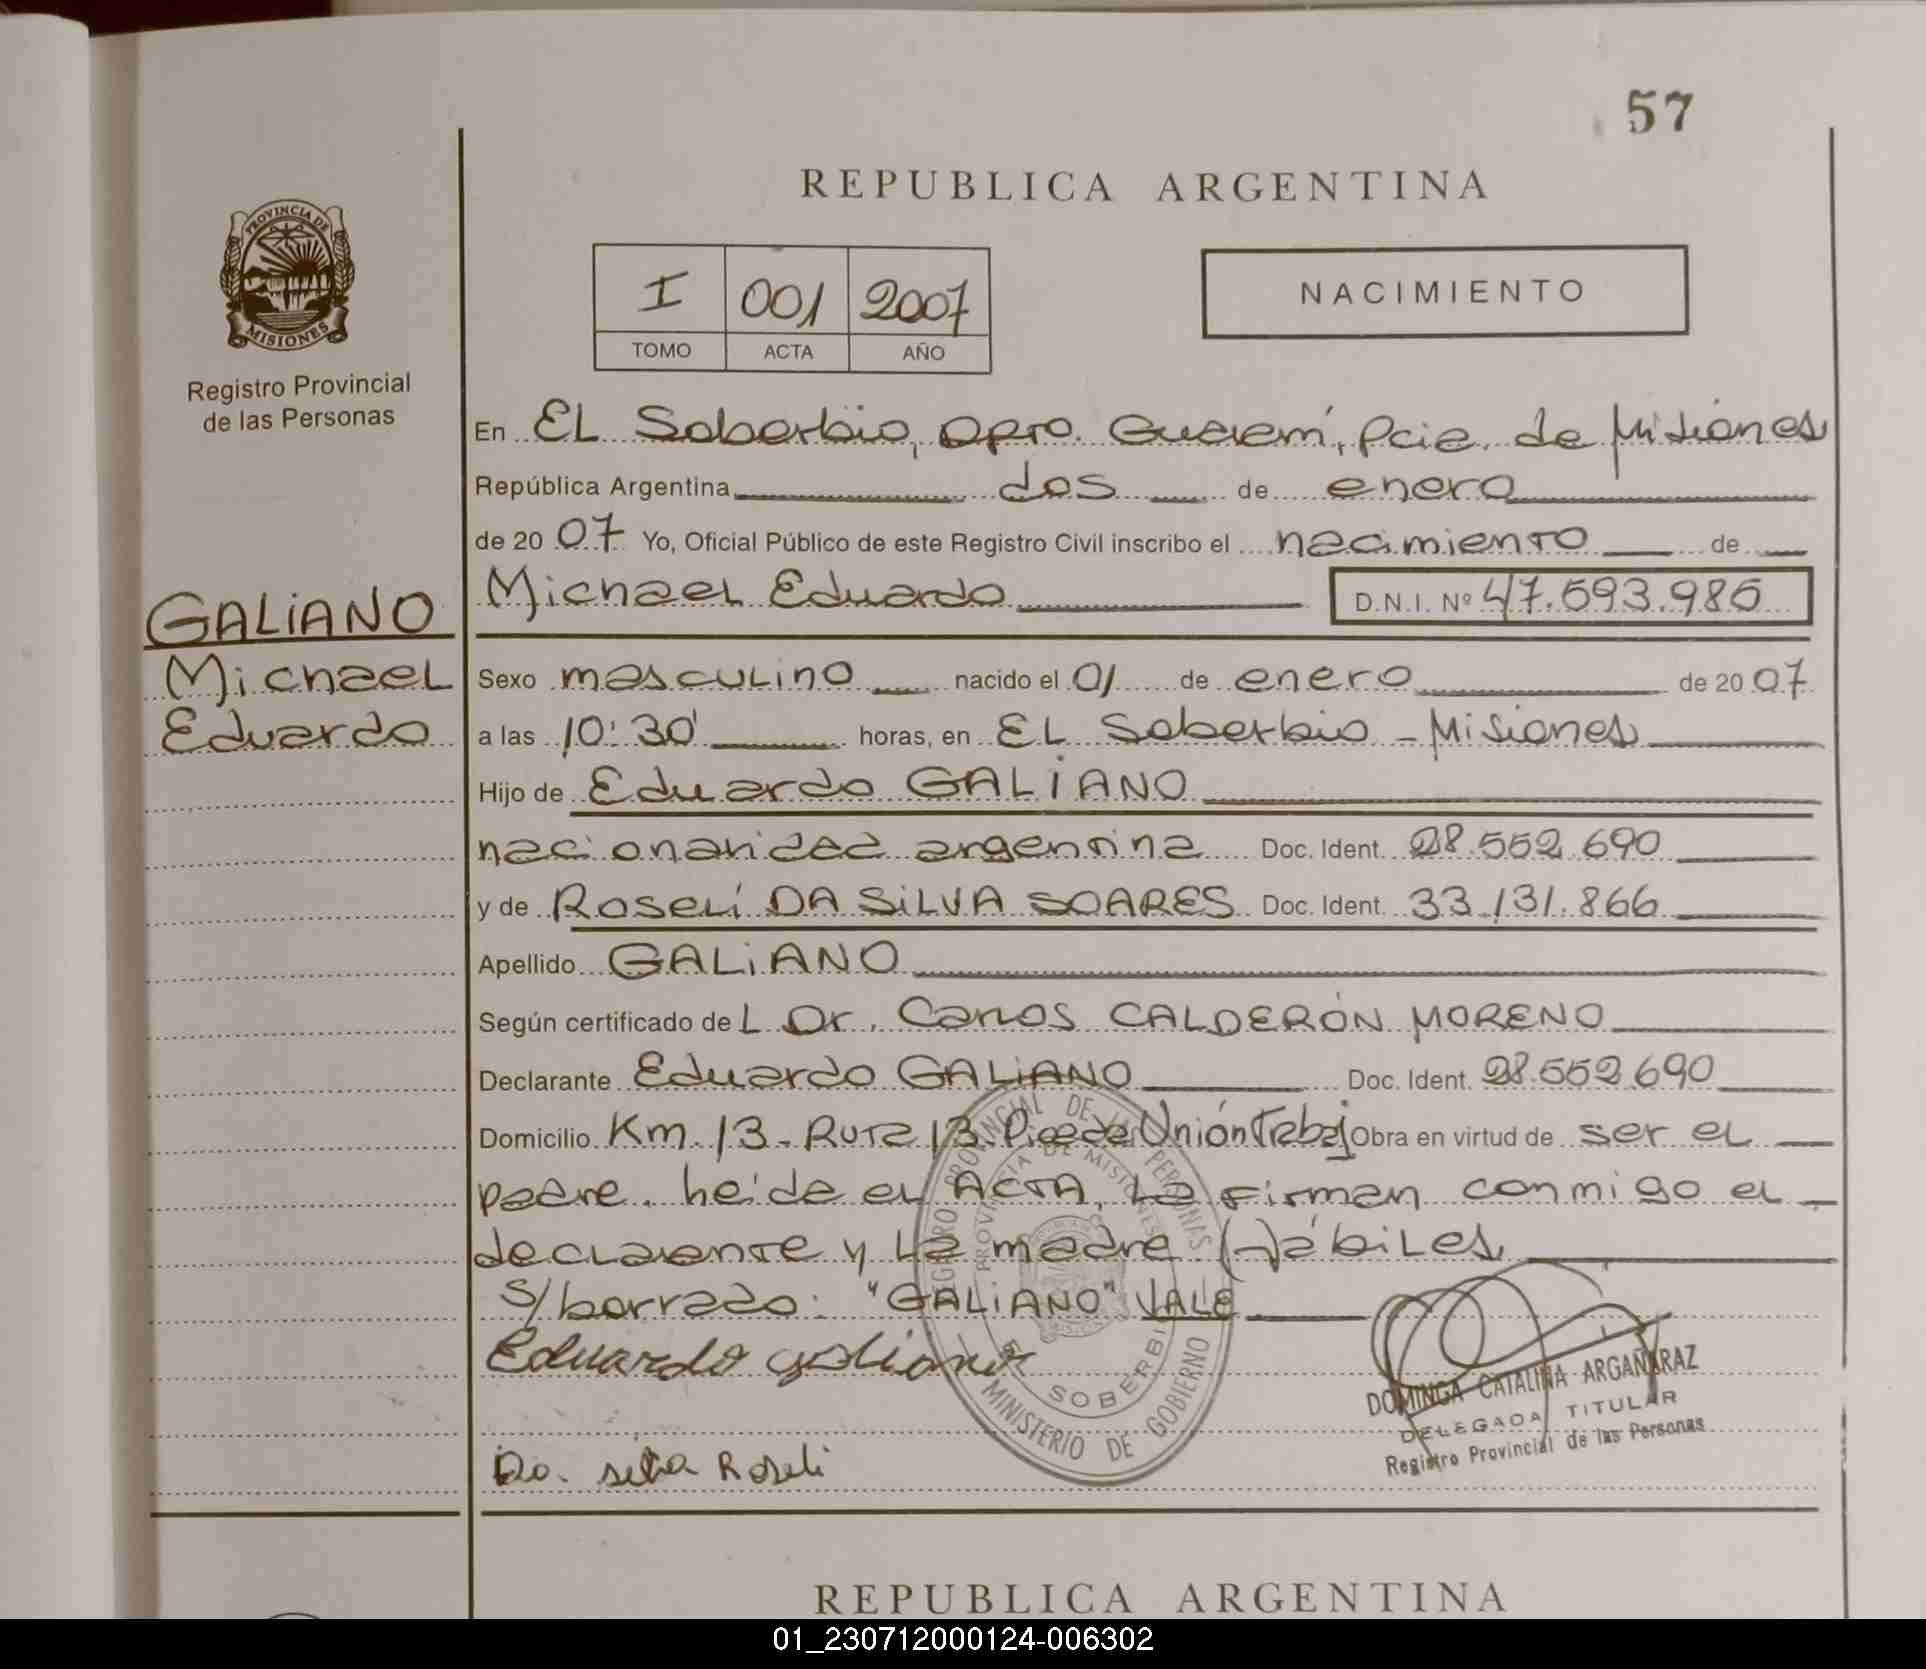 57
REPUBLICA ARGENTINA
PROVINCIA DE
MISIONES
Registro Provincial
de las Personas
I 001 2007
TOMO ACTA AÑO
NACIMIENTO
En EL Soberbio, Dpto. Guaraní, Pcia. de Misiones
República Argentina dos de enero
de 2007 Yo, Oficial Público de este Registro Civil inscribo el nacimiento de
GALIANO
Michael
Eduardo
Michael Eduardo D.N.I. Nº 47.593.985
Sexo masculino nacido el 01 de enero de 2007
a las 10:30' horas, en EL Soberbio - Misiones
Hijo de Eduardo GALIANO
nacionalidad argentina Doc. Ident. 28.552.690
y de Roselí DA SILVA SOARES Doc. Ident. 33.131.866
Apellido GALIANO
Según certificado de L Dr. Carlos CALDERÓN MORENO
Declarante Eduardo GALIANO Doc. Ident. 28.552.690
Domicilio Km. 13 - Ruta 13 - Unión Obra en virtud de ser el
padre. leída el ACTA, la firman conmigo el
declarante y la madre Hábiles.
S/borrado: "GALIANO" VALE
Eduardo galiano
Da. silva Roseli
REGISTRO PROVINCIAL DE LAS PERSONAS
PROVINCIA DE MISIONES
EL SOBERBIO
MINISTERIO DE GOBIERNO
DOMINGA CATALINA ARGAÑARAZ
DELEGADA TITULAR
Registro Provincial de las Personas
REPUBLICA ARGENTINA
01_230712000124-006302